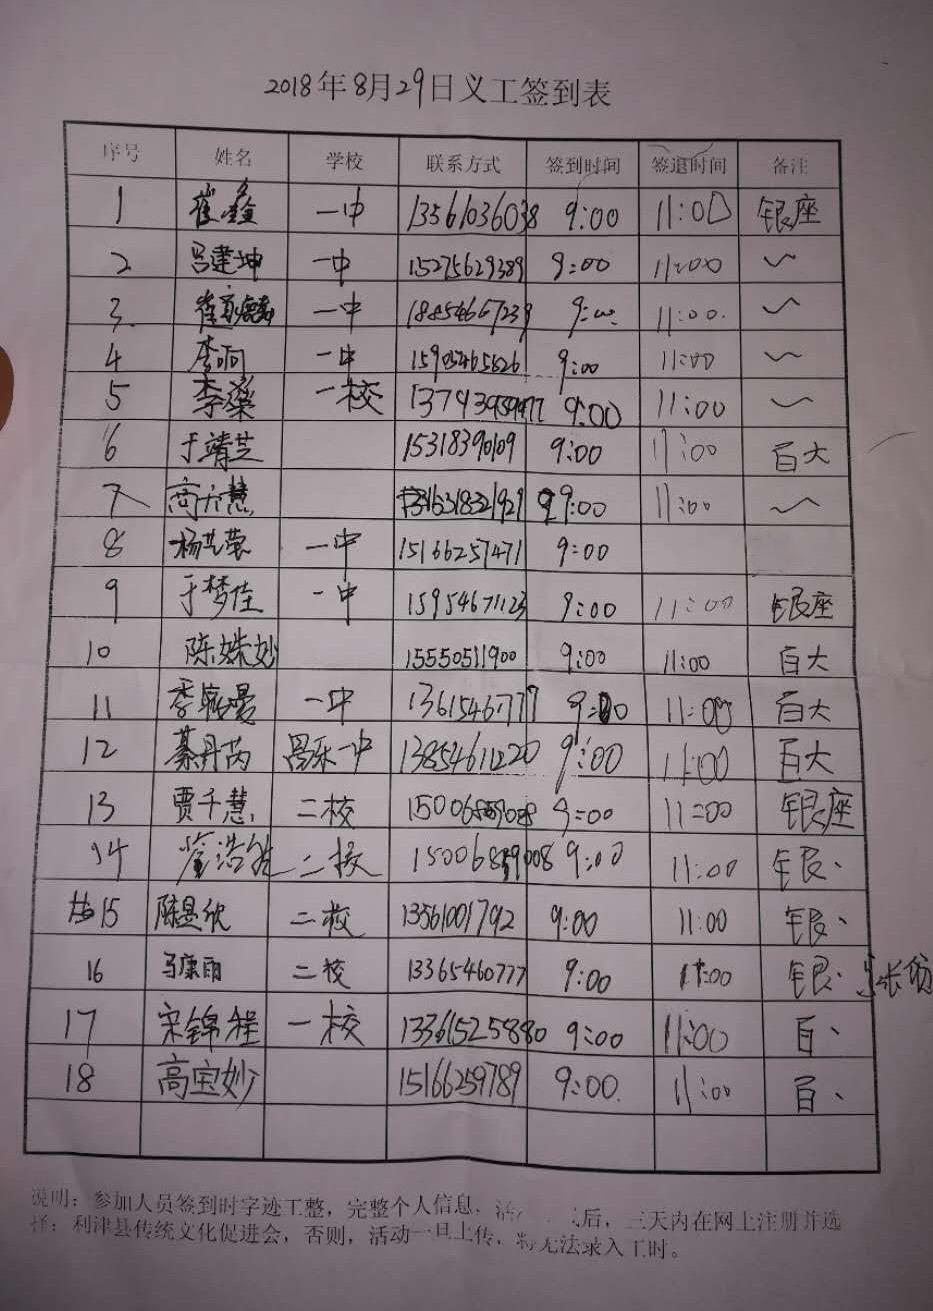 2018年8月29日义工签到表
序号 姓名 学校 联系方式 签到时间 签退时间 备注
1 崔鑫 一中 13561036038 9:00 11:00 银座
2 吕建坤 一中 15275629389 9:00 11:00 〜
3 一中 18854667239 9:00 11:00 〜
4 李响 一中 15905465626 9:00 11:00 〜
5 李燊 一校 9:00 11:00 〜
6 于靖芝 15318390109 9:00 11:00 百大
7 商方慧 9:00 11:00 〜
8 杨芝蓉 一中 15166257471 9:00
9 于梦佳 一中 15954671123 9:00 11:00 银座
10 陈姝妙 15550511900 9:00 11:00 百大
11 一中 13615467777 9:00 11:00 百大
12 綦丹芮 昌乐一中 13854611220 9:00 11:00 百大
13 贾千慧 二校 9:00 11:00 银座
14 二校 15006859008 9:00 11:00 银、
15 陈昱欣 二校 13561001792 9:00 11:00 银、
16 马康雨 二校 13365460777 9:00 11:00 银、
17 宋锦程 一校 13361525880 9:00 11:00 百、
18 高宝妙 15166259789 9:00 11:00 百、
说明：参加人员签到时字迹工整，完整个人信息，活 后，三天内在网上注册并选
择：利津县传统文化促进会，否则，活动一旦上传，将无法录入工时。